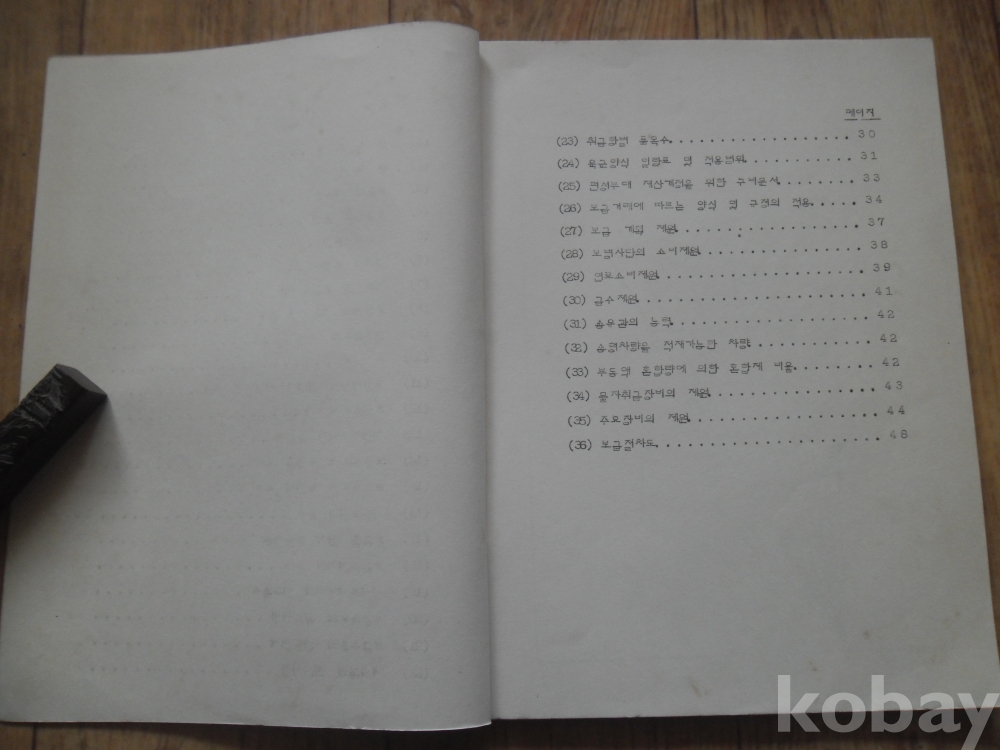 페이지
(23) 취급장별 품목수 30
(24) 육군양식 일람표 및 적용범위 31
(25) 편성부대 재산계정을 위한 구비문서 33
(26) 보급거리에 따르는 양식 및 규정의 적용 34
(27) 보급 계획 제원 37
(28) 보병사단의 소비제원 38
(29) 연료소비제원 39
(30) 급수제원 41
(31) 송유관의 능력 42
(32) 차량을 적재가능한 차량 42
(33) 부동액 혼합량에 의한 혼합제 비율 42
(34) 물자취급장비의 제원 43
(35) 주요장비의 제원 44
(36) 보급절차도 48
kobay